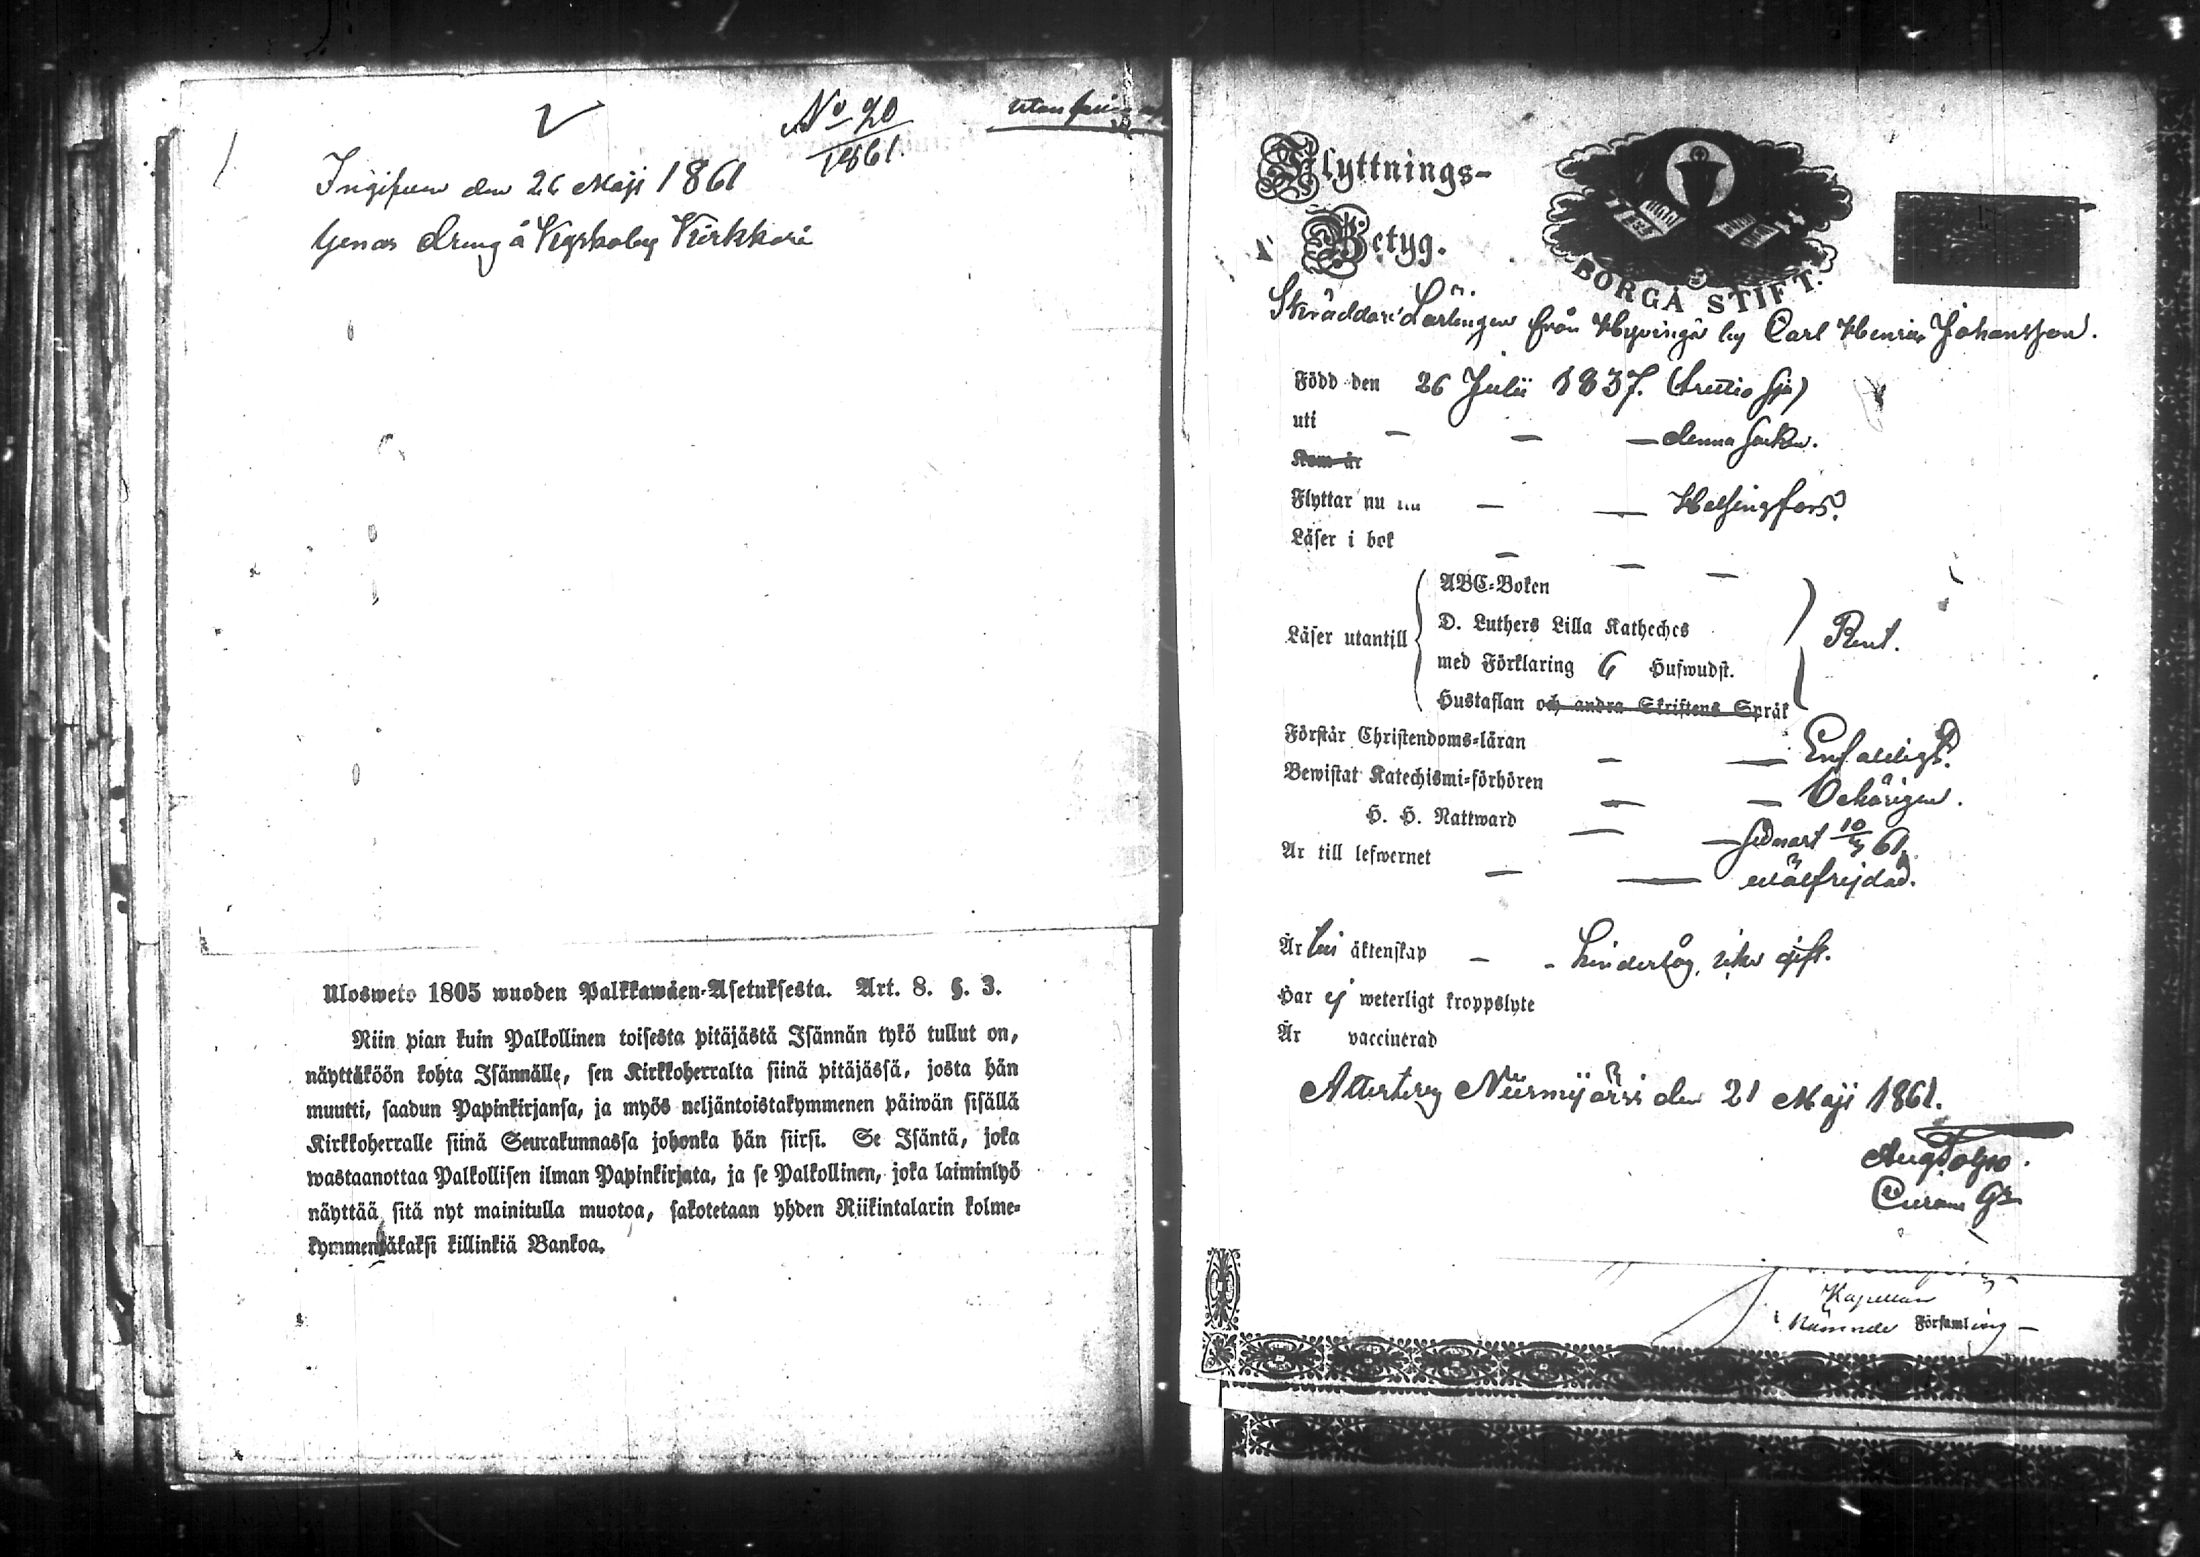 No 90
1861.
Ingifven den 26 Maji 1861
dreng å
Ulosweto 1805 wuoden Palkkawäen-Asetuksesta. Art. 8. §. 3.
Niin pian kuin Palkollinen toisesta pitäjästä Isännän tykö tullut on,
näyttäköön kohta Isännälle, sen Kirkkoherralta siinä pitäjässä, josta hän
muutti, saadun Papinkirjansa, ja myös neljäntoistakymmenen päiwän sisällä
Kirkkoherralle siinä Seurakunnassa johonka hän siirsi. Se Isäntä, joka
wastaanottaa Palkollisen ilman Papinkirjata, ja se Palkollinen, joka laiminlyö
näyttää sitä nyt mainitulla muotoa, sakotetaan yhden Riikintalarin kolme-
kymmentäkaksi killinkiä Bankoa.
Flyttnings-
Betyg.
BORGÅ STIFT.
Skräddare Lärlingen från Hyvinge by Carl Henric Johansson.
Född den 26 Julii 1837.
uti — — — denna Socken.
Kom år
Flyttar nu till — — Helsingfors.
Läser i bok — — —
ABC-Boken
Läser utantill D. Luthers Lilla Katheches Rent.
med Förklaring 6 Hufwudst.
Hustaflan och andra Skriftens Språk
Förstår Christendoms-läran — — Enfaldigt.
Bewistat Katechismi-förhören — — Behörigen.
H. H. Nattward — — sednast 10/3 61.
Är till lefwernet — — wälfrejdad.
Är till äktenskap — - hinderlög, icke gift.
Har ej weterligt kroppslyte
Är vaccinerad
Attesterar Nurmijärvi den 21 Maji 1861.
Kapellan
i Nämnde Församling —